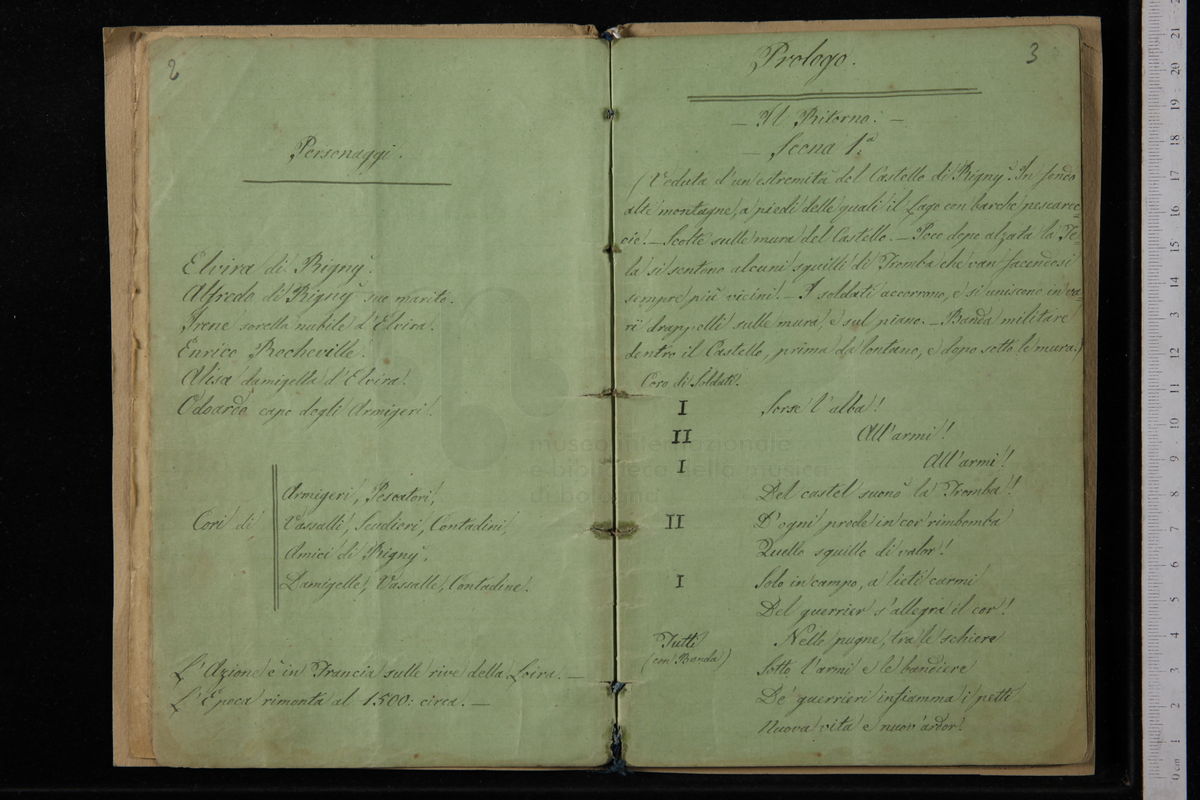 2
Personaggi.
Elvira di Rigny.
Alfredo di Rigny suo marito.
Irene sorella nubile d'Elvira.
Enrico Rocheville.
Alisa damigella d'Elvira.
Odoardo capo degli Armigeri.
Cori di
Armigeri, Pescatori,
Vassalli, Scudieri, Contadini,
Amici di Rigny.
Damigelle, Vassalle, Contadine.
L'Azione è in Francia sulle rive della Loira. —
L'Epoca rimonta al 1500: circa. —
3
Prologo.
— Il Ritorno. —
— Scena 1.a
(Veduta d'un'estremità del Castello di Rigny. In fondo
alte montagne, a piedi delle quali il lago con barche pescarec=
cie. — Scolte sulle mura del Castello. — Poco dopo alzata la Te=
la si sentono alcuni squilli di Tromba che van facendosi
sempre più vicini. — I soldati accorrono, e si uniscono in va=
rï drappelli sulle mura, e sul piano. — Banda militare
dentro il Castello, prima da lontano, e dopo sotto le mura.)
Coro di Soldati.
I Sorse l'alba!
II All'armi!
I All'armi!
Del castel suonò la Tromba!
II D'ogni prode in cor rimbomba
Quello squillo di valor!
I Solo in campo, a lieti carmi
Del guerrier s'allegra il cor!
Tutti Nelle pugne, tra le schiere
(con Banda) Sotto l'armi e le bandiere
De' guerrieri infiamma i petti
Nuova vita e nuov'ardor!
museo internazionale
e biblioteca della musica
di bologna
0 cm 1 2 3 4 5 6 7 8 9 10 11 12 13 14 15 16 17 18 19 20 21